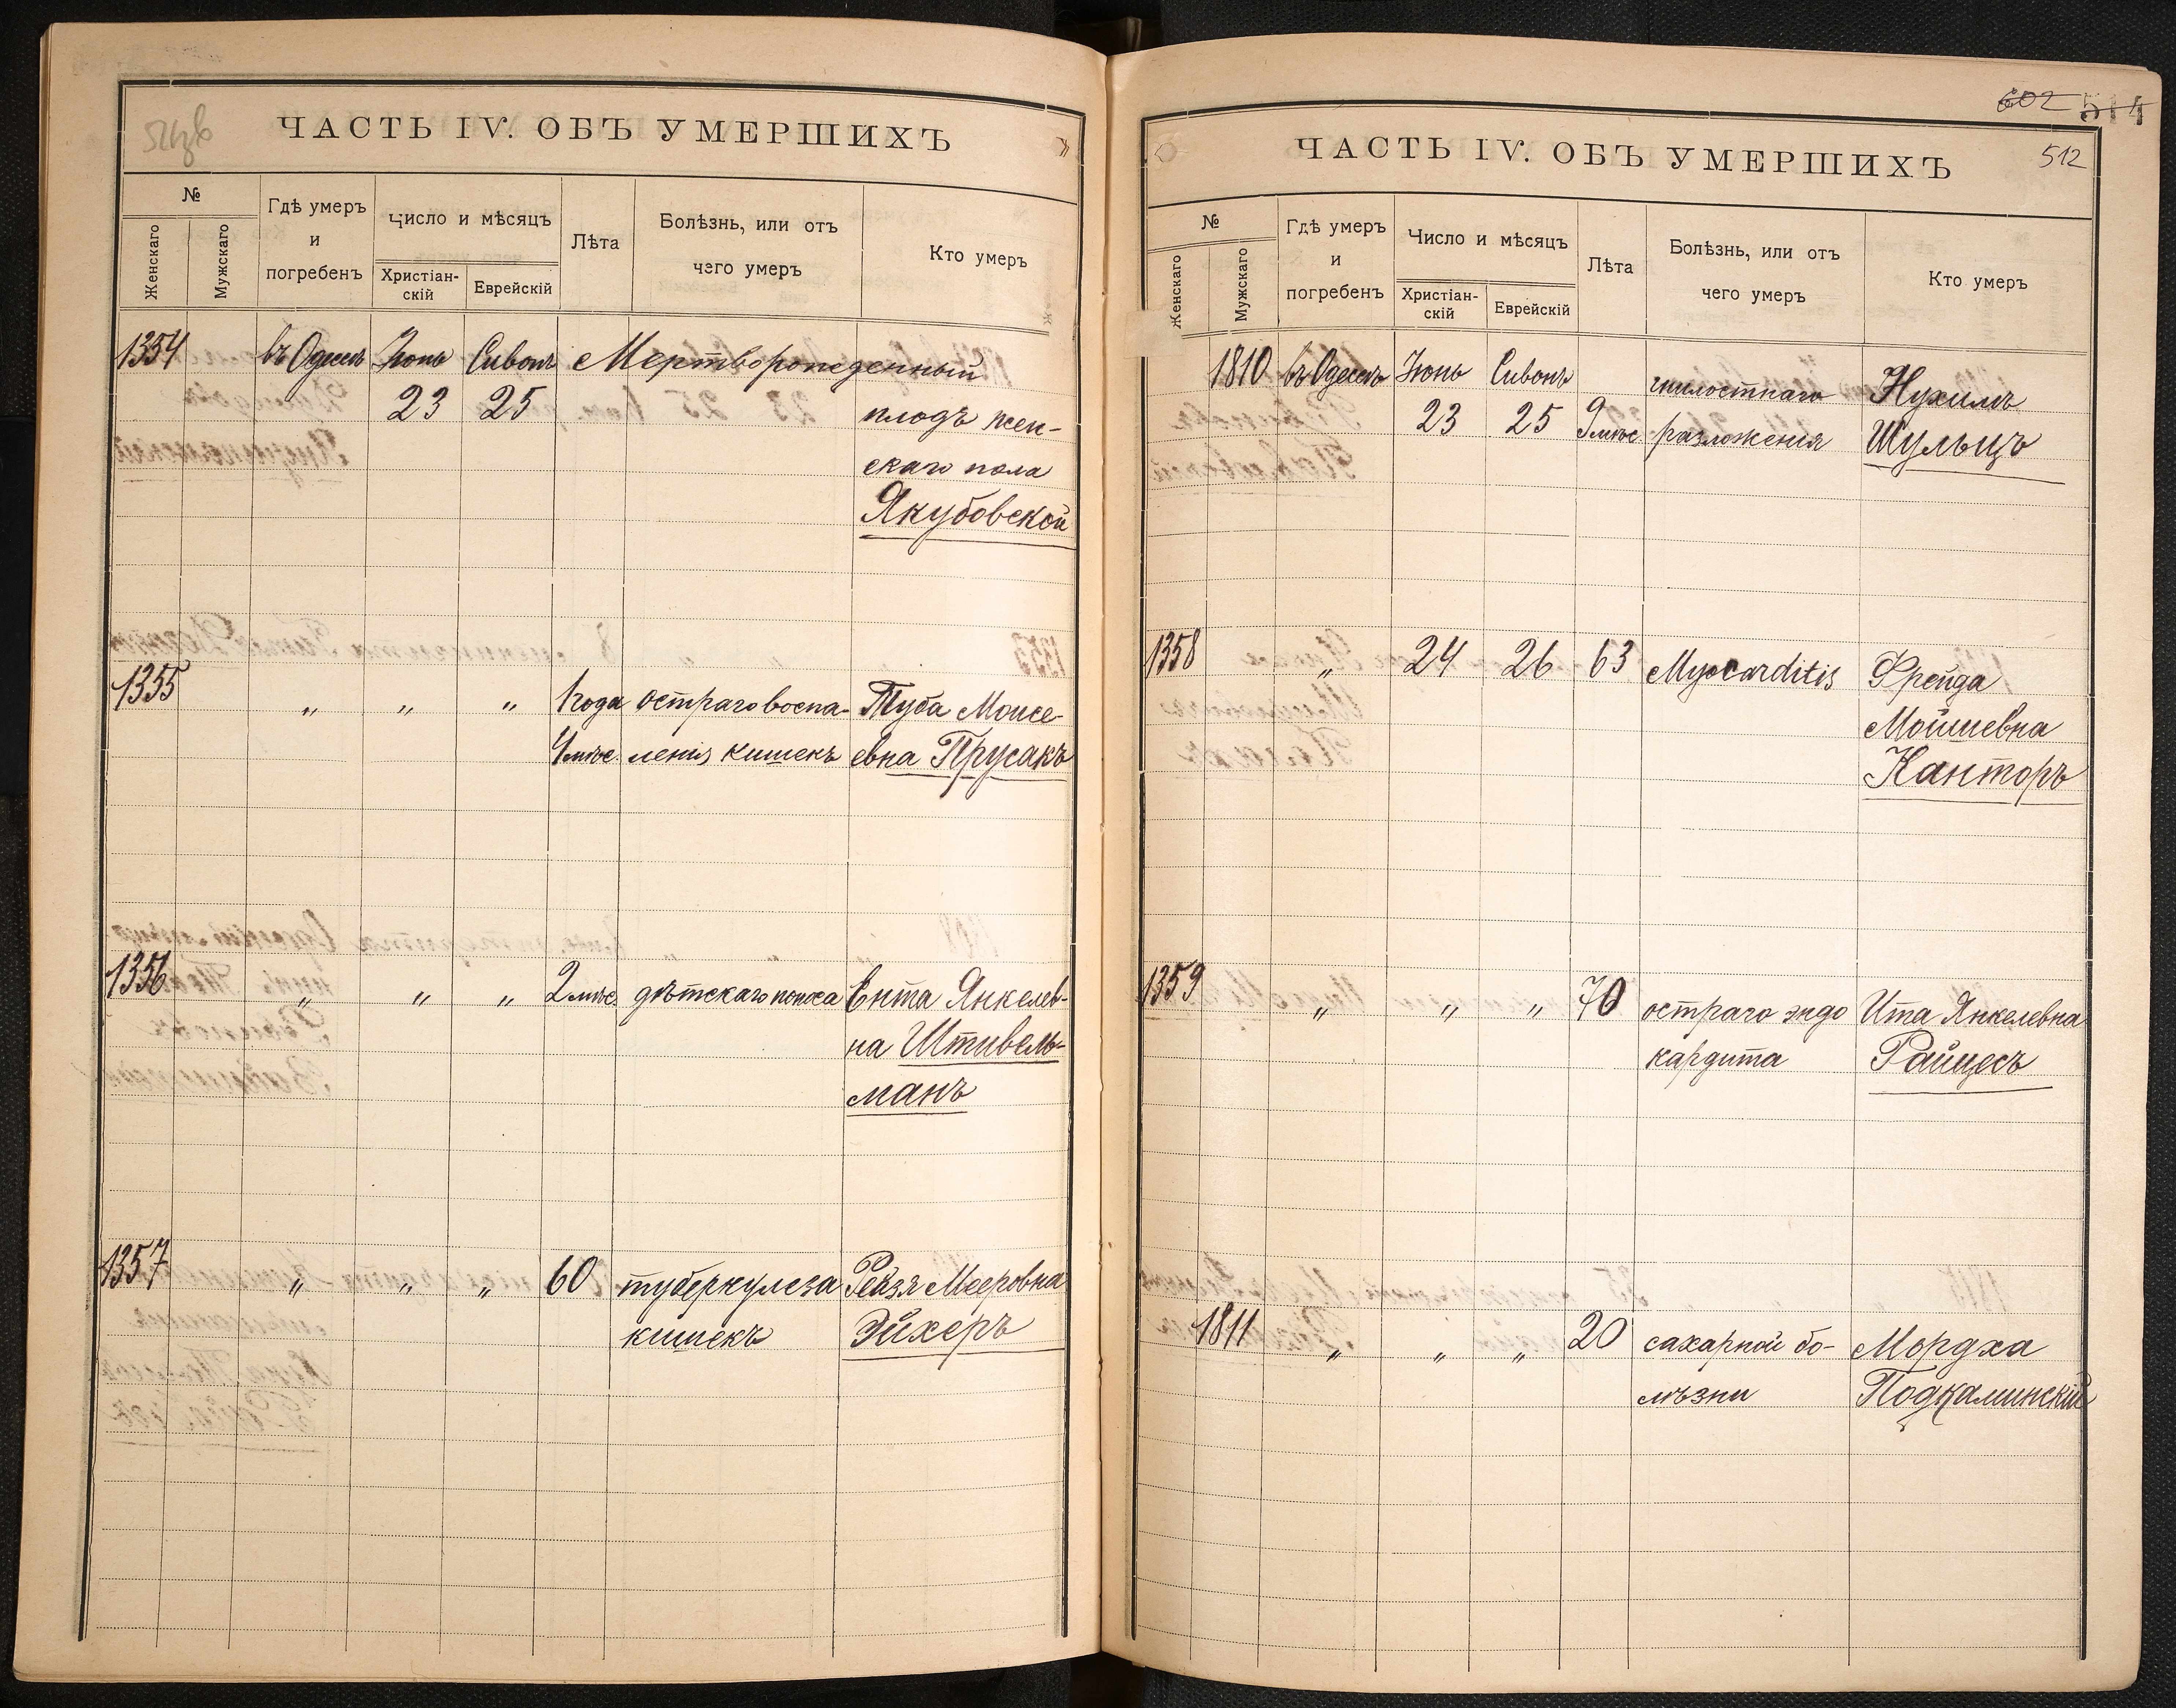 ЧАСТЬ IV. ОБЪ УМЕРШИХЪ
№
Женскаго
Мужскаго
Гдѣ умеръ
и
погребенъ
Число и мѣсяцъ
Христіан-
скій
Еврейскій
Лѣта
Болѣзнь, или отъ
чего умеръ
Кто умеръ
1354 въ Одессѣ Іюнь Сивонъ Мертворожденный
23 25 плодъ жен-
скаго пола
Якубовской
1355 " " " 1 года остраго воспа- Туба Моисе-
4 мѣс. ленія кишекъ евна Прусакъ
1356 " " " 2 мѣс. дѣтскаго поноса Ента Янкелев-
на Штивель-
манъ
1357 " " " 60 туберкулеза Рейзя Мееровна
кишекъ Эйхеръ
602 514
ЧАСТЬ IV. ОБЪ УМЕРШИХЪ 512
№
Женскаго
Мужскаго
Гдѣ умеръ
и
погребенъ
Число и мѣсяцъ
Христіан-
скій
Еврейскій
Лѣта
Болѣзнь, или отъ
чего умеръ
Кто умеръ
1810 въ Одессѣ Іюнь Сивонъ гнилостнаго Нухимъ
23 25 9 мѣс. разложенія Шульцъ
1358 " 24 26 63 Myocarditis Фрейда
Мойшевна
Канторъ
1359 " " " 70 остраго эндо Ита Янкелевна
кардита Райцесъ
1811 " " " 20 сахарной бо- Мордха
лѣзни Подкаминскій